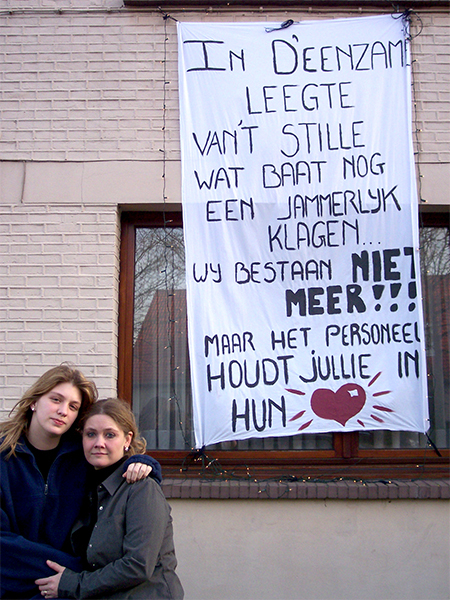 IN D'EENZAME
LEEGTE
VAN'T STILLE
WAT BAAT NOG
EEN JAMMERLYK
KLAGEN...
WY BESTAAN NIET
MEER!!!
MAAR HET PERSONEEL
HOUDT JULLIE IN
HUN